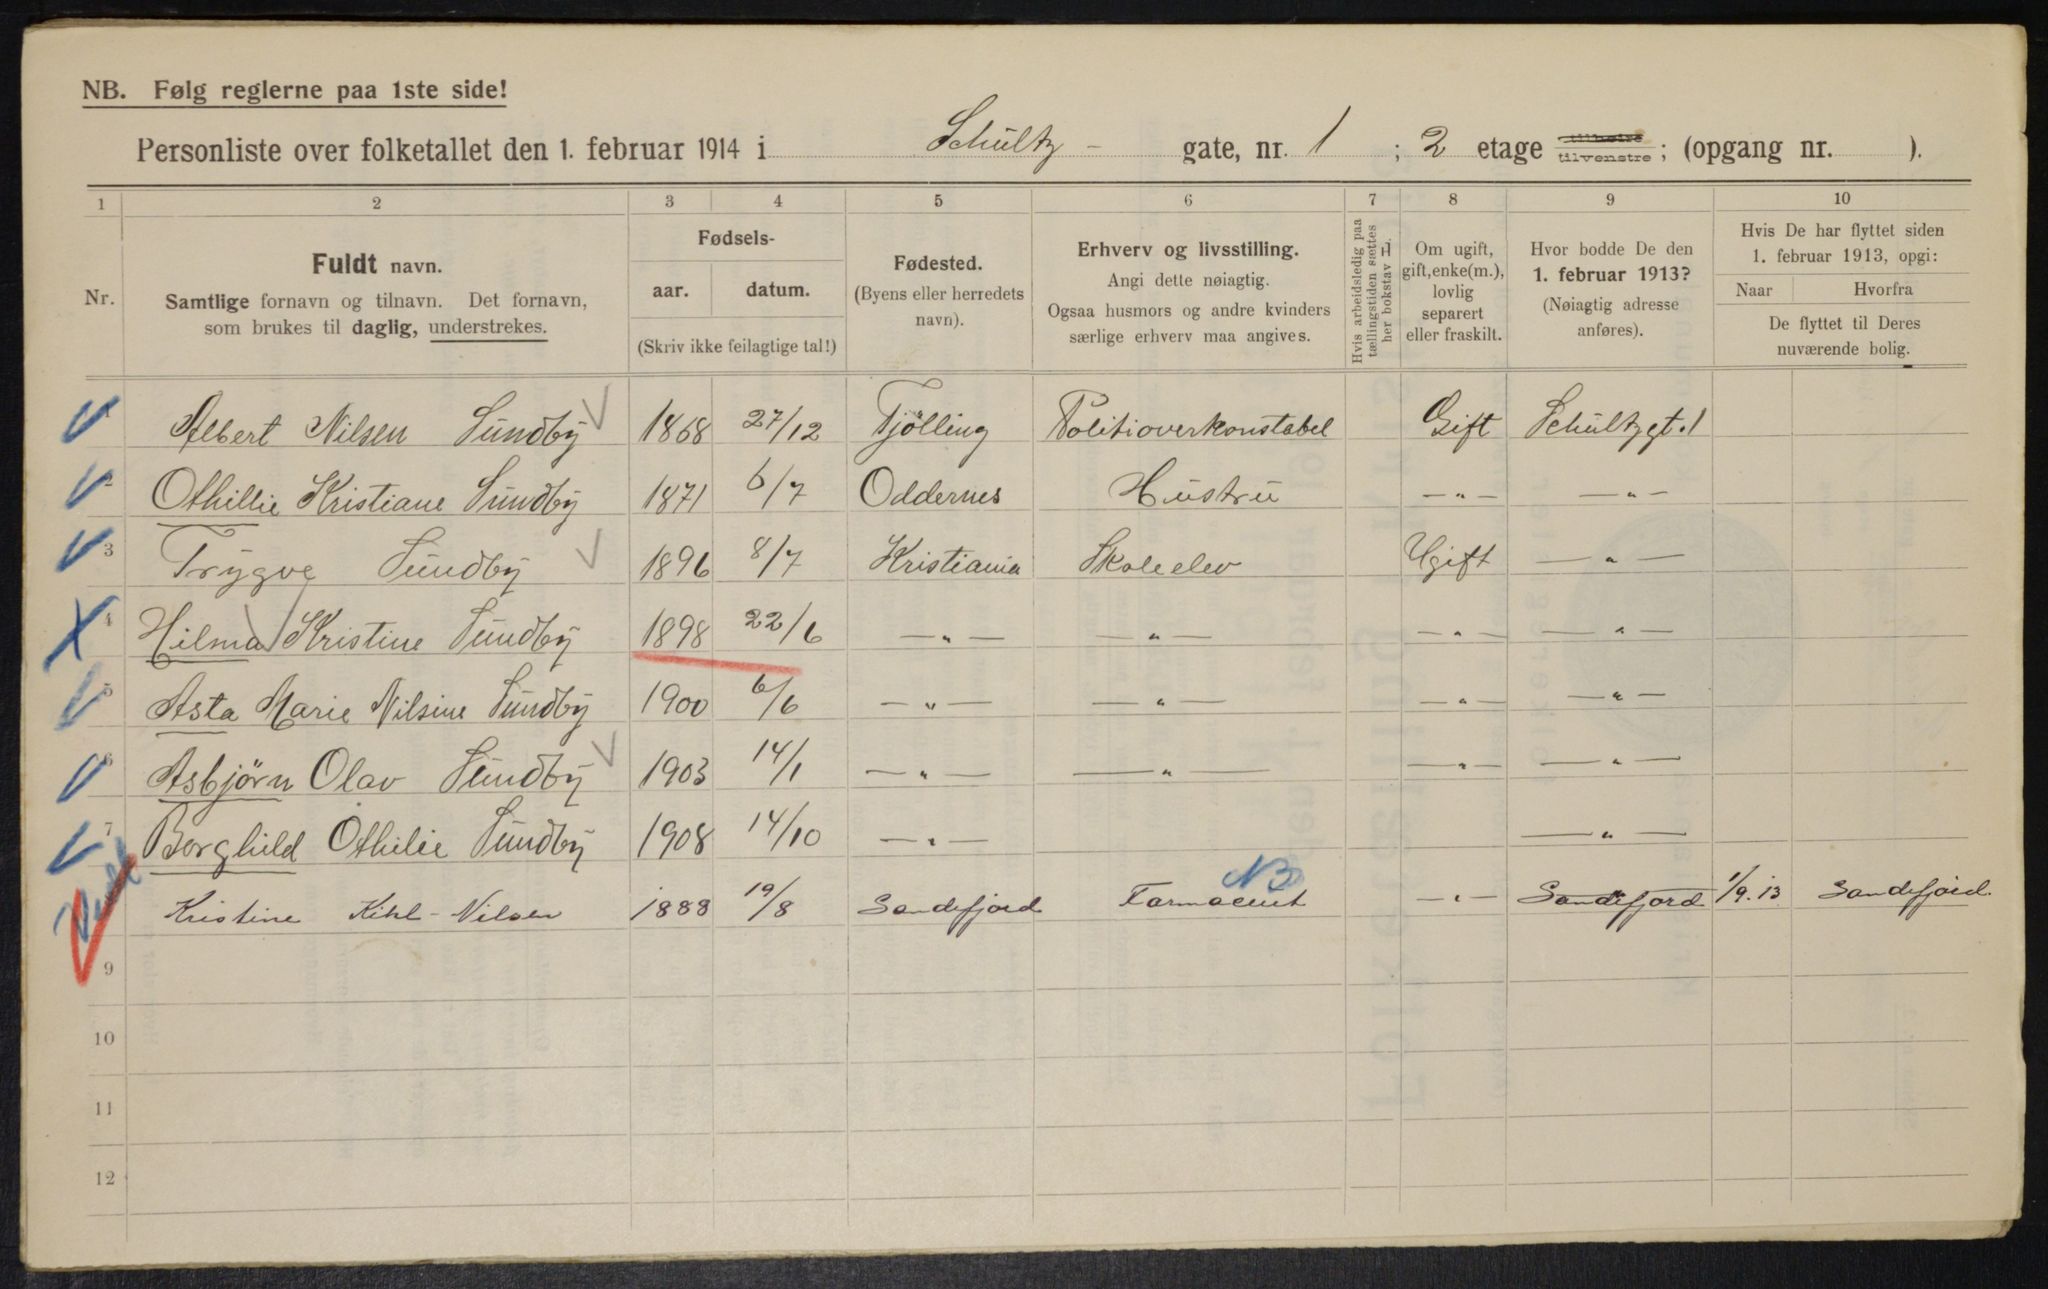 NB. Følg reglerne paa 1ste side!
Personliste over folketallet den 1. februar 1914 i Schultz - gate, nr. 1 ; 2 etage tilhøire tilvenstre ; (opgang nr. ).
1 2 3 4 5 6 7 8 9 10
Nr.
Fuldt navn.
Samtlige fornavn og tilnavn. Det fornavn,
som brukes til daglig, understrekes.
Fødsels-
aar. datum.
(Skriv ikke feilagtige tal!)
Fødested.
(Byens eller herredets
navn).
Erhverv og livsstilling.
Angi dette nøiagtig.
Ogsaa husmors og andre kvinders
særlige erhverv maa angives.
Hvis arbeidsledig paa
tællingstiden sættes
her bokstav L
Om ugift,
gift, enke(m.),
lovlig
separert
eller fraskilt.
Hvor bodde De den
1. februar 1913?
(Nøiagtig adresse
anføres).
Hvis De har flyttet siden
1. februar 1913, opgi:
Naar Hvorfra
De flyttet til Deres
nuværende bolig.
1 Albert Nilsen Sundby 1868 27/12 Tjølling Politioverkonstabel Gift Schultzgt. 1
2 Othillie Kristiane Sundby 1871 6/7 Oddernes Hustru — " — — " —
3 Trygve Sundby 1896 8/7 Kristiania Skoleelev Ugift — " —
4 Hilma Kristine Sundby 1898 22/6 — " — — " — — " — — " —
5 Asta Marie Nilsine Sundby 1900 6/6 — " — — " — — " — — " —
6 Asbjørn Olav Sundby 1903 14/1 — " — — " — — " — — " —
7 Borghild Othilie Sundby 1908 14/10 — " — — " —
NB
Kristine Kihl-Nilsen 1888 19/8 Sandefjord Farmaceut — " — Sandefjord 1/9.13 Sandefjord.
9
10
11
12